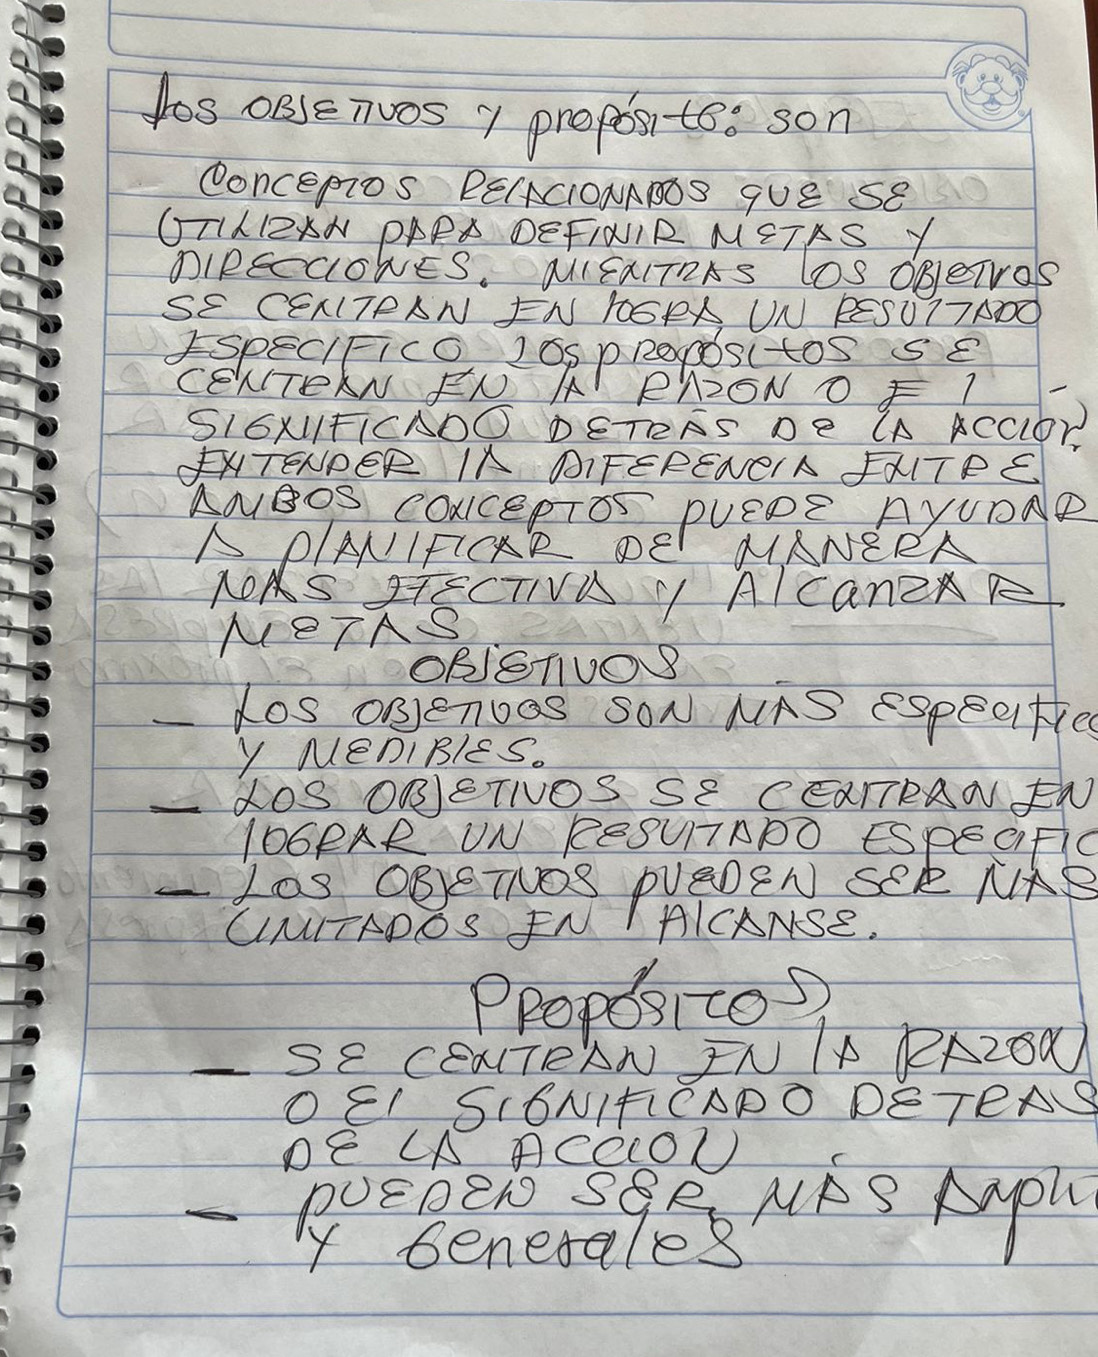 Los OBJETIVOS y propósito: son
Conceptos RELACIONADOS QUE SE
UTILIZAN PARA DEFINIR METAS Y
DIRECCIONES. MIENTRAS LOS OBJETIVOS
SE CENTRAN EN lOGRA UN RESULTADO
ESPECIFICO lOS PROPÓSITOS SE
CENTRAN EN lA RAZON O El
SIGNIFICADO DETRÁS DE LA ACCIÓN,
ENTENDER lA DIFERENCIA ENTRE
AMBOS CONCEPTOS PUEDE AYUDAR
A PlANIFICAR DE MANERA
MAS EFECTIVA Y AlCanZAR
METAS
OBJETIVOS
- LOS OBJETIVOS SON MÁS ESPECIFICO
Y MEDIBLES.
- LOS OBJETIVOS SE CENTRAN EN
lOGRAR UN RESULTADO ESPECIFIC
- LOS OBJETIVOS PUEDEN SER MAS
LIMITADOS EN AlCANSE.
PROPÓSITOS
- SE CENTRAN EN lA RAZON
O El SIGNIFICADO DETRAS
DE LA ACCION
- PUEDEN SER MÁS Ampli
Y Generales